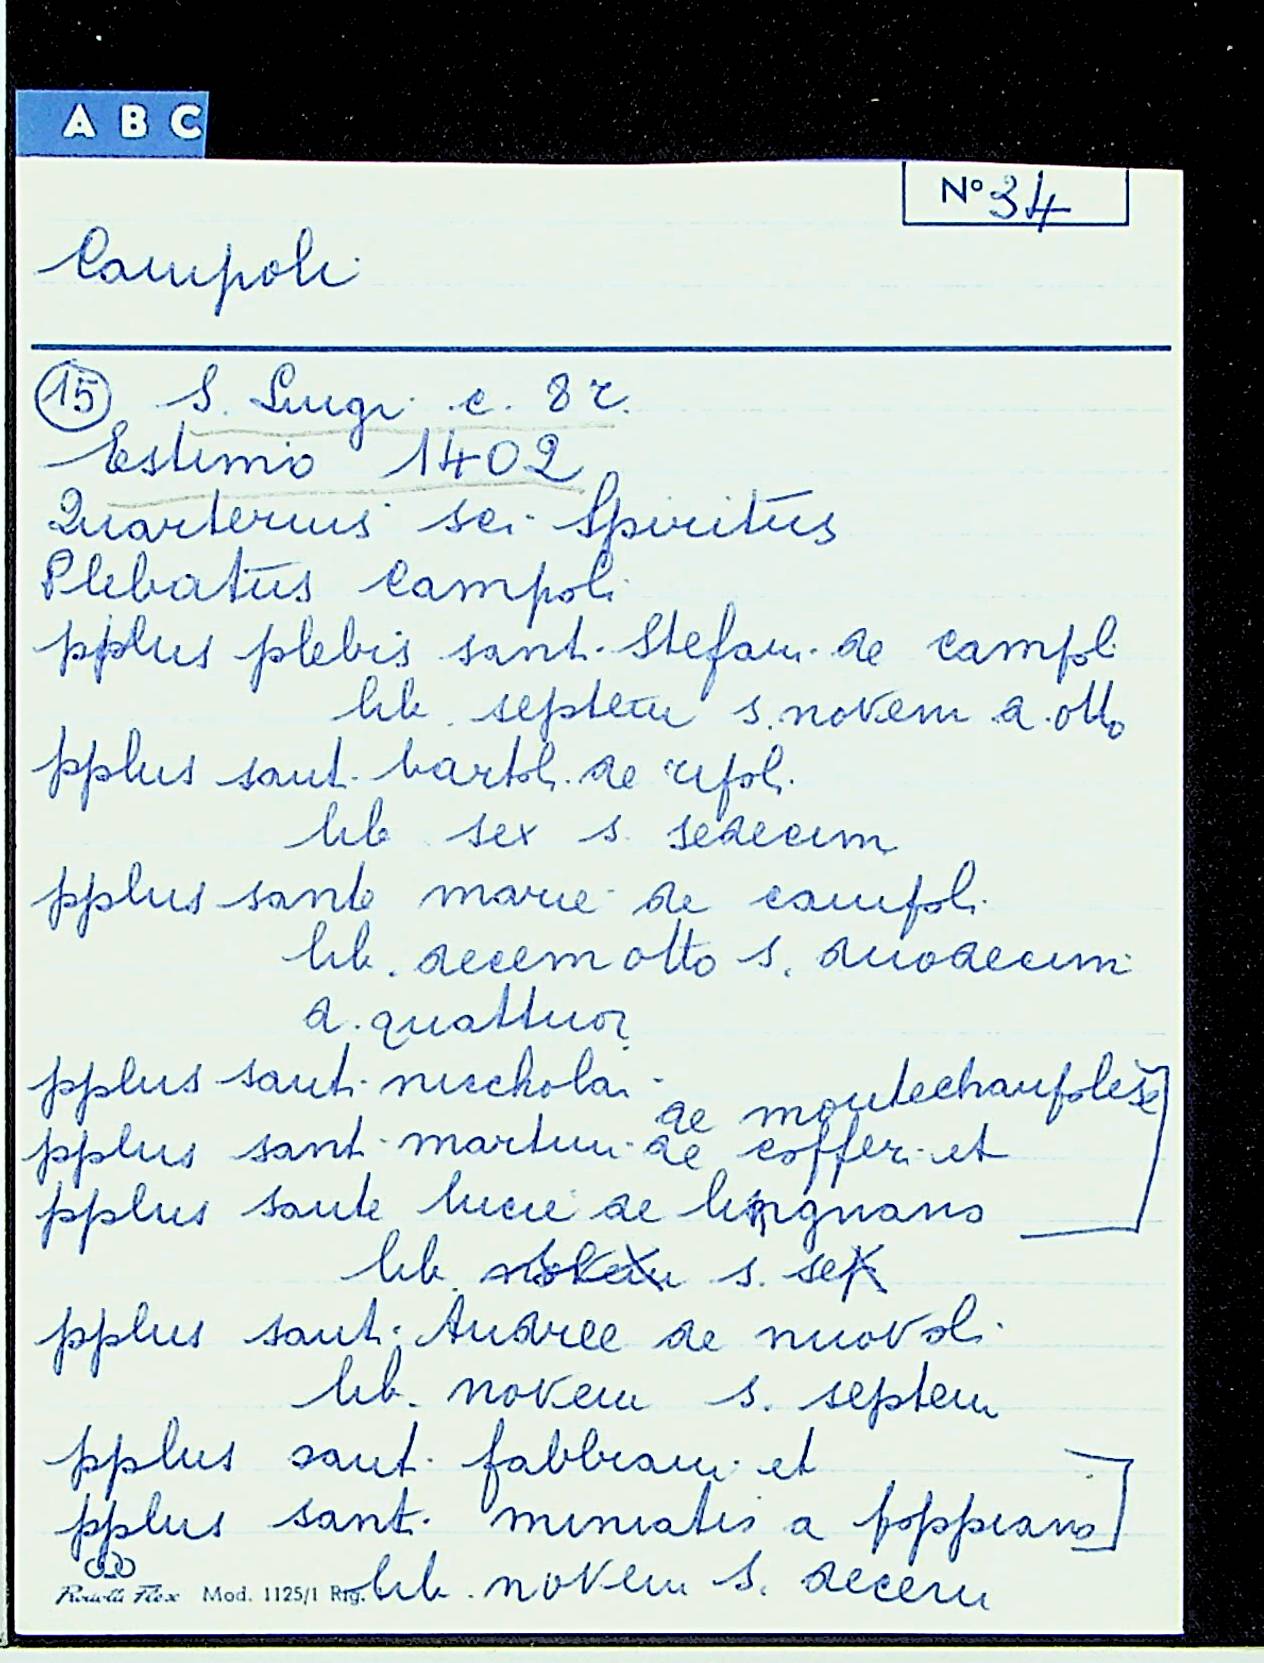 A B C
Nº 34
Campoli
15 S. Luigi c. 8 r.
Estimo 1402
Quarterius sci Spiritus
Plebatus campoli
pplus plebis sant. Stefani de campoli
lib. septem s. novem d. otto
pplus sant. bartoli. de ripoli.
lib sex s. sedecim
pplus sante marie de campoli.
lib. decem otto s. duodecim
d. quattuor
pplus sant. nuccholai de montechanpolese
pplus sant. martini de cofferi et
pplus sante lucie de lingnano
lib. s. sex
pplus sant. Andree de nuovoli.
lib. novem s. septem
pplus sant. fabbiani et
pplus sant. miniatis a poppiano
lib. novem s. decem
Mod. 1125/1 Rig.